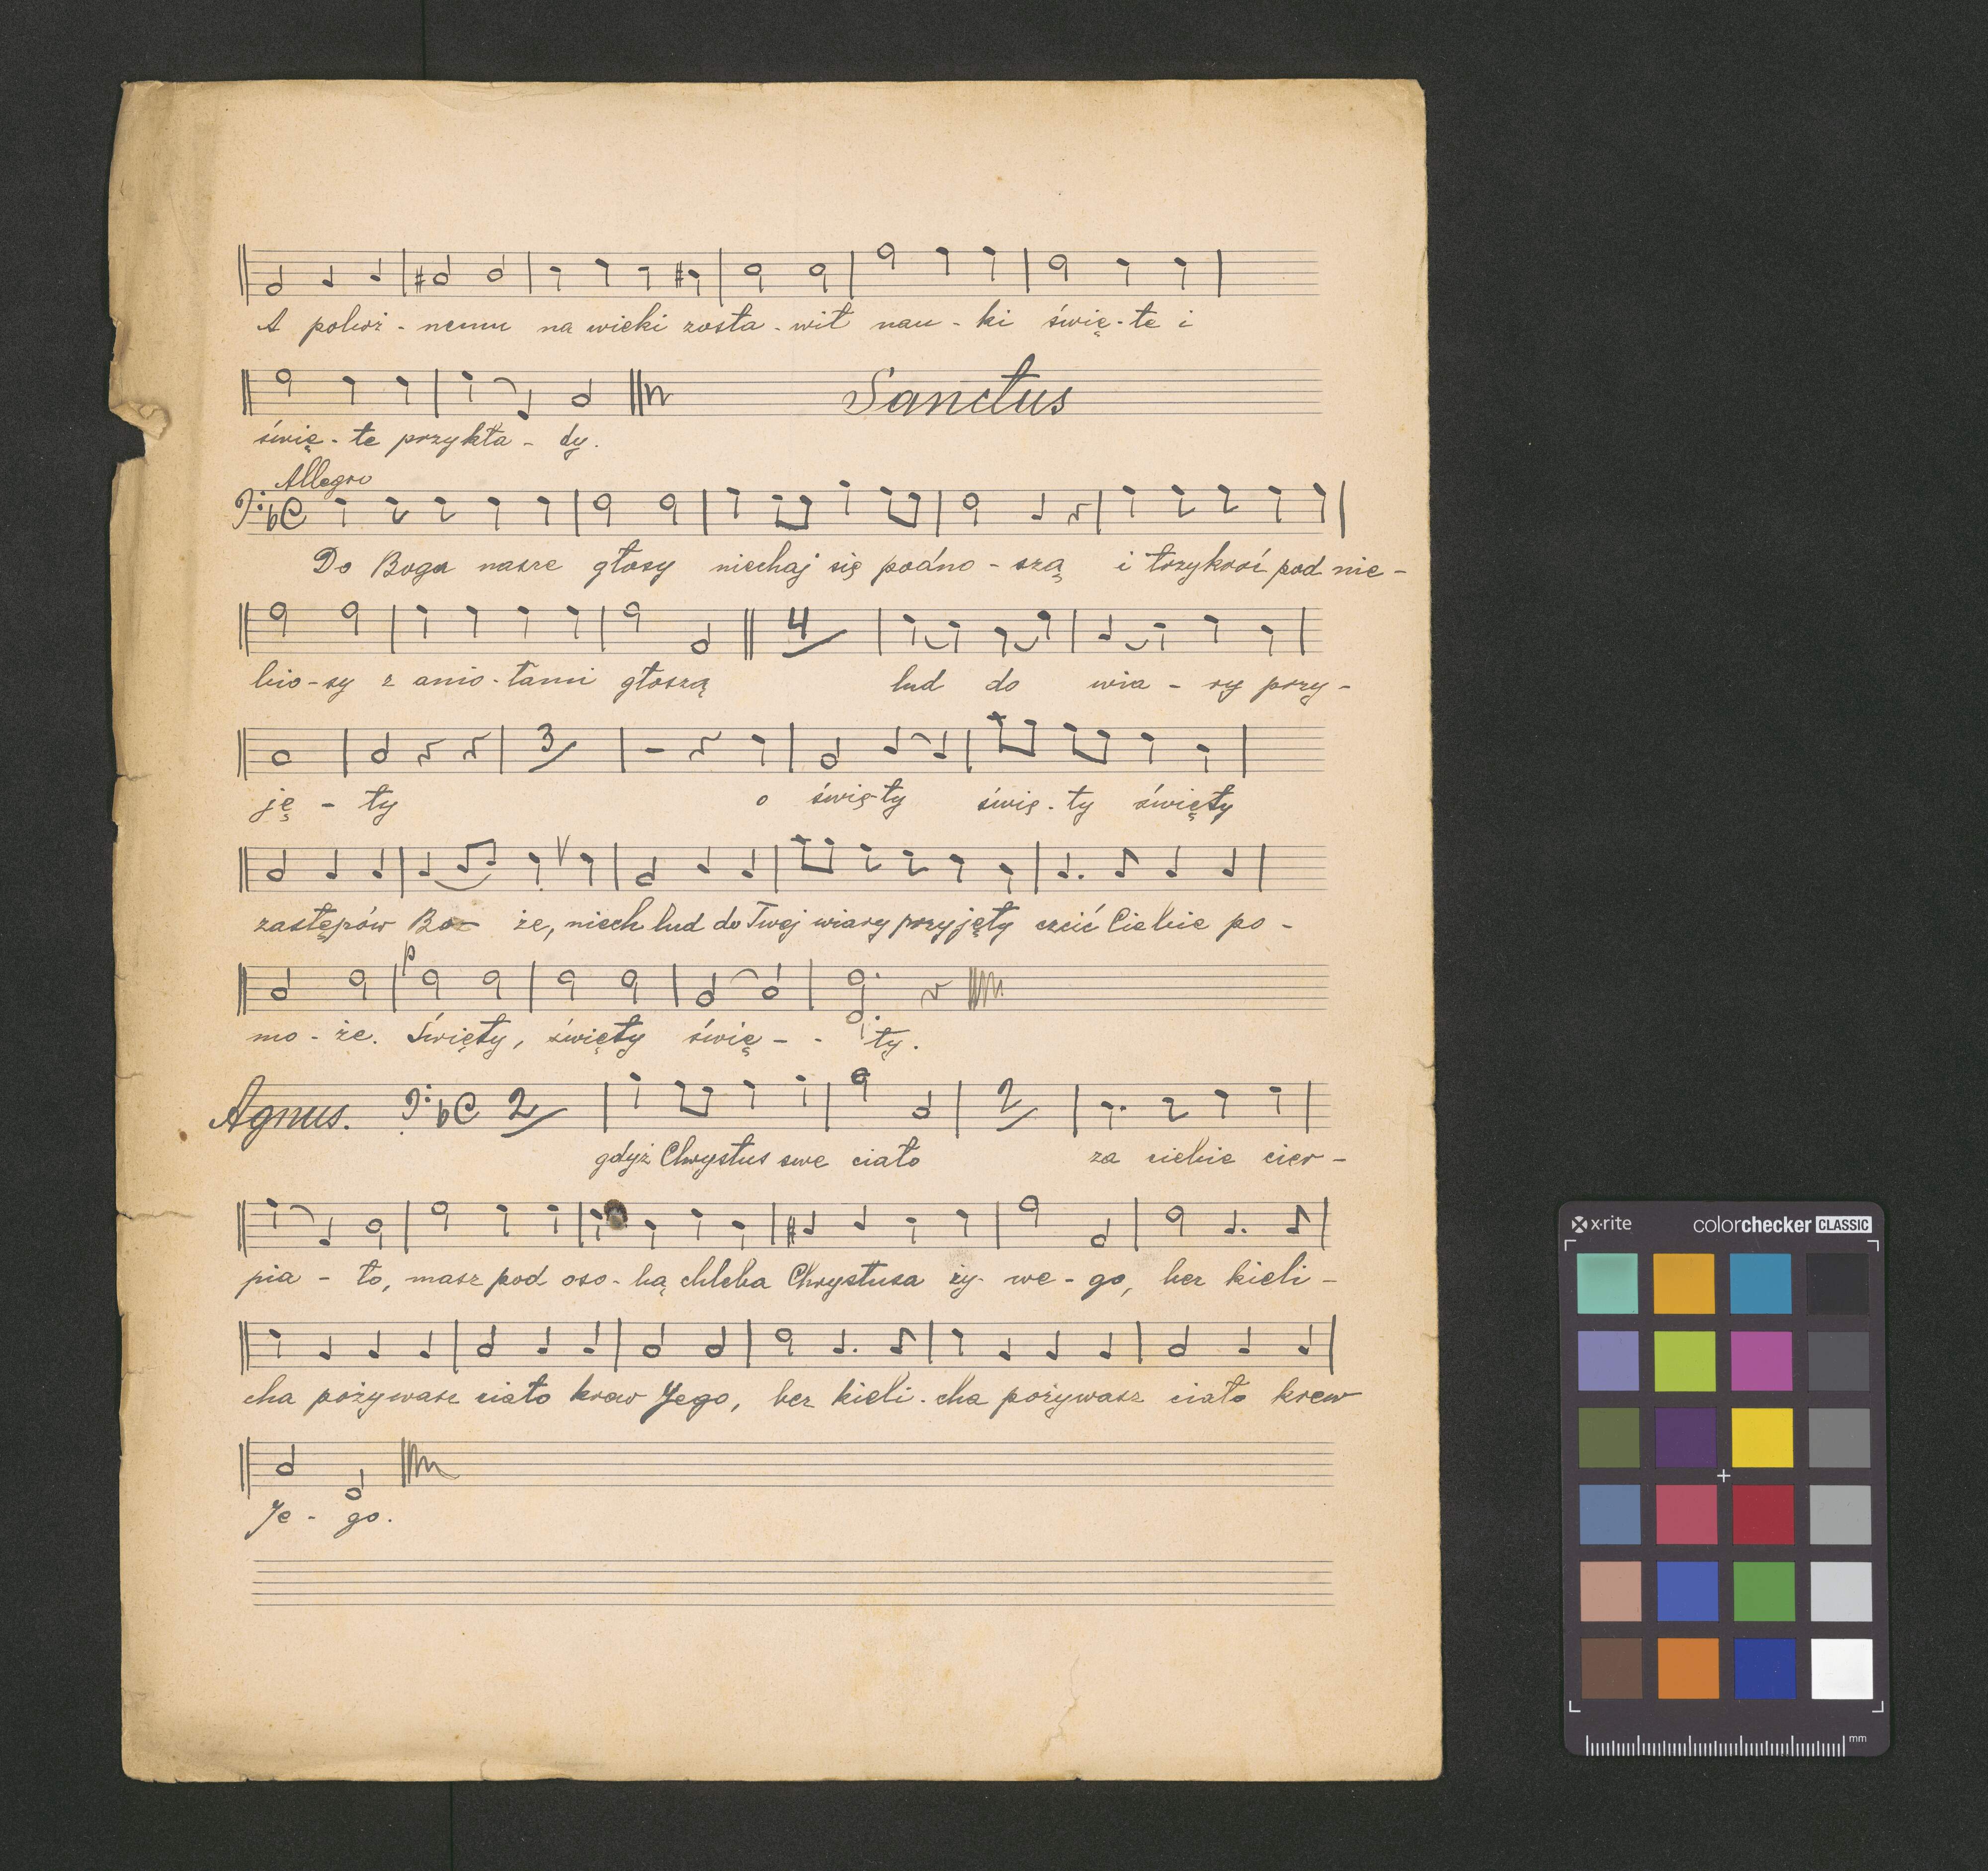 A pobożnemu na wieki zosta-wił nau-ki świę-te i
Sanctus
świę-te przykła-dy.
Allegro
Do Boga nasze głosy niechaj się podno-szą i trzykroć pod nie-
bio-sy z anio-łami głoszą 4 lud do wia-ry przy-
3
ję-ty o święty świę-ty święty
zastępów Bo- że, niech lud do Twej wiary przyjęty czcić Ciebie po-
p
mo-że. Święty, święty świę-- ty.
Agnus. 2 2
gdyż Chrystus swe ciało za ciebie cier-
pia-ło, masz pod oso-bą chleba Chrystusa ży-we-go, bez kieli-
cha pożywasz ciało krew Jego, bez kieli-cha pożywasz ciało krew
Je-go.
x-rite colorchecker CLASSIC
mm